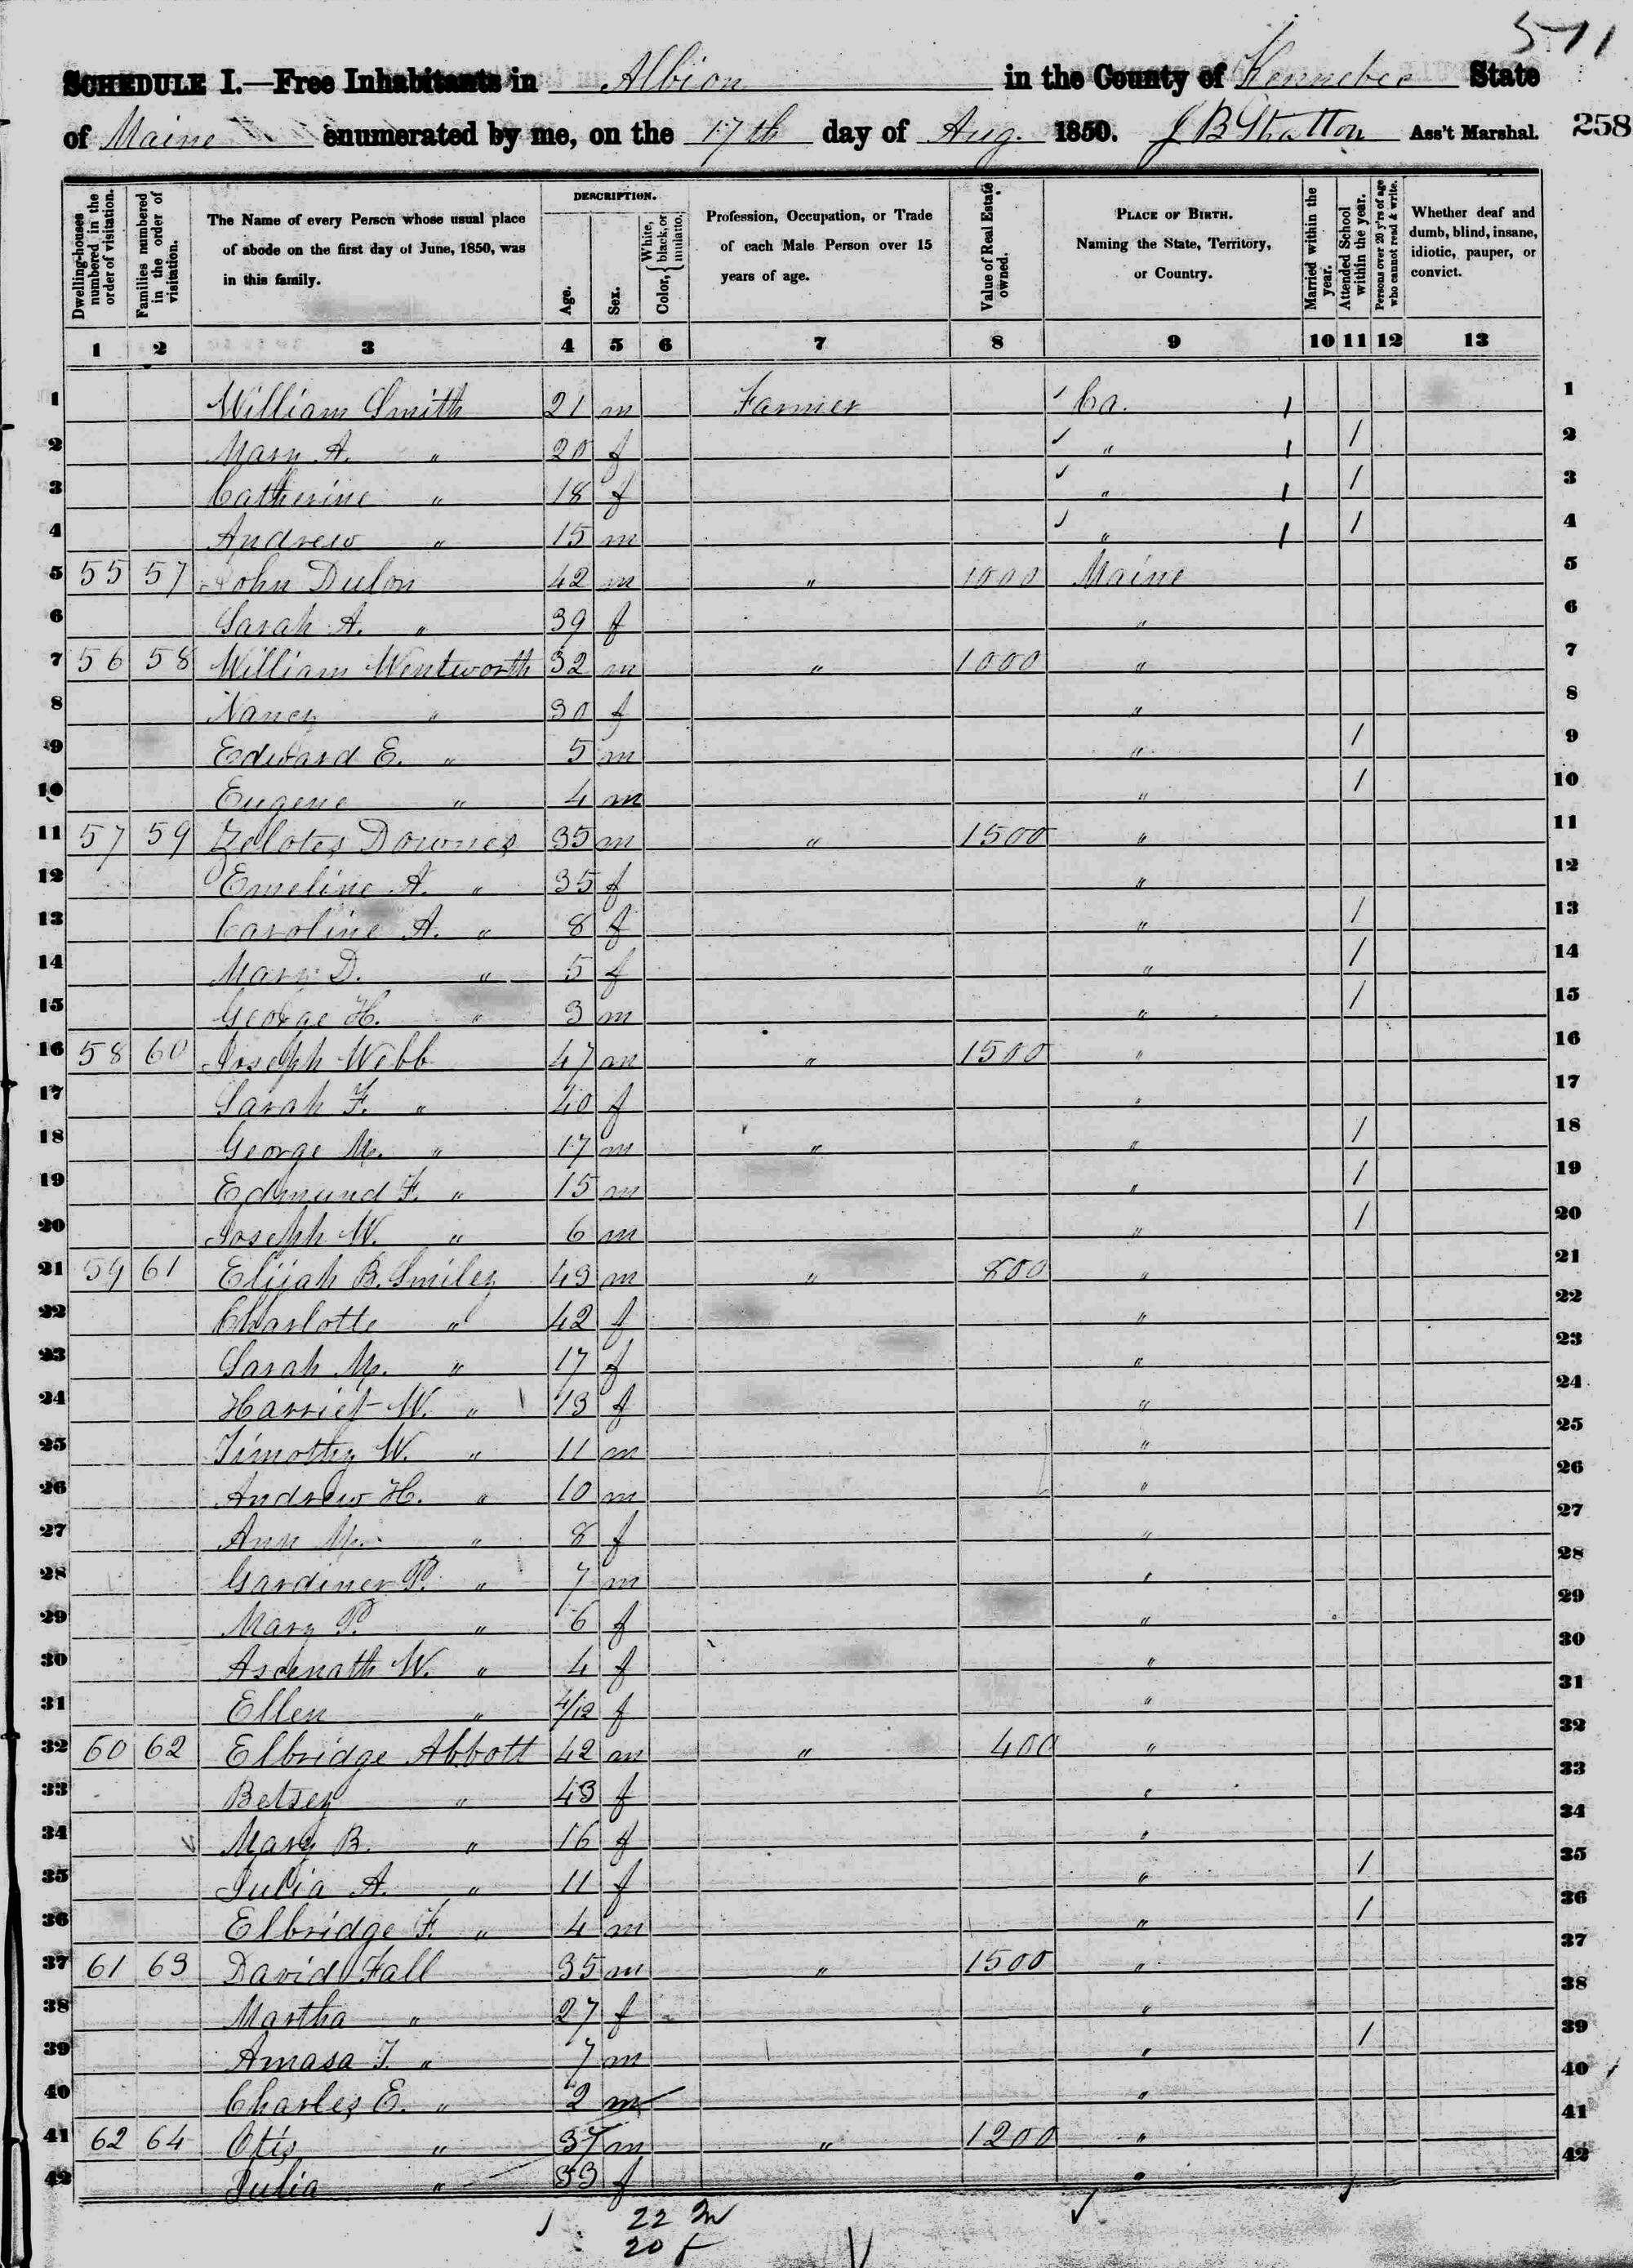 571
SCHEDULE I.—Free Inhabitants in Albion in the County of Kennebec State
of Maine enumerated by me, on the 17th day of Aug. 1850. J B Stratton Ass't Marshal. 258
Dwelling-houses numbered in the order of visitation.
Families numbered in the order of visitation.
The Name of every Person whose usual place of abode on the first day of June, 1850, was in this family.
DESCRIPTION.
Age.
Sex.
Color, { White, black, or mulatto.
Profession, Occupation, or Trade of each Male Person over 15 years of age.
Value of Real Estate owned.
PLACE OF BIRTH. Naming the State, Territory, or Country.
Married within the year.
Attended School within the year.
Persons over 20 y'rs of age who cannot read & write.
Whether deaf and dumb, blind, insane, idiotic, pauper, or convict.
1 2 3 4 5 6 7 8 9 10 11 12 13
1 William Smith 21 m Farmer Ca. 1 1
2 Mary A. " 20 f " 1 / 2
3 Catherine " 18 f " 1 / 3
4 Andrew " 15 m " 1 / 4
5 55 57 John Dulon 42 m " 1000 Maine 5
6 Sarah A. " 39 f " 6
7 56 58 William Wentworth 32 m " 1000 " 7
8 Nancy " 30 f " 8
9 Edward E. " 5 m " / 9
10 Eugene " 4 m " / 10
11 57 59 Zelotes Downes 35 m " 1500 " 11
12 Emeline A. " 35 f " 12
13 Caroline A. " 8 f " / 13
14 Mary D. " 5 f " / 14
15 George H. " 3 m " / 15
16 58 60 Joseph Webb 47 m " 1500 " 16
17 Sarah F. " 40 f " 17
18 George M. " 17 m " " / 18
19 Edmund F. " 15 m " / 19
20 Joseph W. " 6 m " / 20
21 59 61 Elijah B. Smiley 43 m " 800 " 21
22 Charlotte " 42 f " 22
23 Sarah M. " 17 f " 23
24 Harriet W. " 13 f " 24
25 Timothy W. " 11 m " 25
26 Andrew H. " 10 m " 26
27 Ann M. " 8 f " 27
28 Gardiner P. " 7 m " 28
29 Mary P. " 6 f " 29
30 Asenath W. " 4 f " 30
31 Ellen " 4/12 f " 31
32 60 62 Elbridge Abbott 42 m " 400 " 32
33 Betsey " 43 f " 33
34 Mary B. " 16 f " 34
35 Julia A. " 11 f " / 35
36 Elbridge F. " 4 m " / 36
37 61 63 David Fall 35 m " 1500 " 37
38 Martha " 27 f " 38
39 Amasa T. " 7 m " / 39
40 Charles E. " 2 m " 40
41 62 64 Otis " 37 m " 1200 " 41
42 Julia " 33 f " 42
22 m
20 f